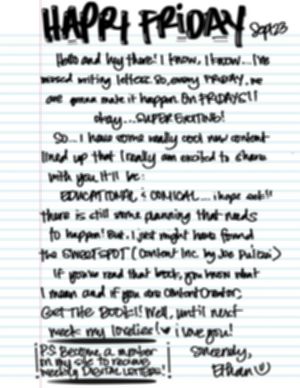 HAPPY FRIDAY Sept 23
Hello and hey there! I know, I know... I've
missed writing letters. So, every FRIDAY, we
are gonna make it happen. On FRIDAYS!!
okay... SUPER EXCITING!
So... I have some really cool new content
lined up that I really am excited to share
with you. It'll be:
EDUCATIONAL & COMICAL... i hope eek!!
there is still some planning that needs
to happen! But. I just might have found
the SWEETSPOT (Content Inc. by Joe Pulizzi)
If you've read that book, you know what
I mean and if you are Content Creator,
Get THE BOOK!! Well, until next
week my lovelies! i love you!
P.S. Become a member
on my site to receive
weekly DIGITAL LETTERS!
Sincerely,
Ethan